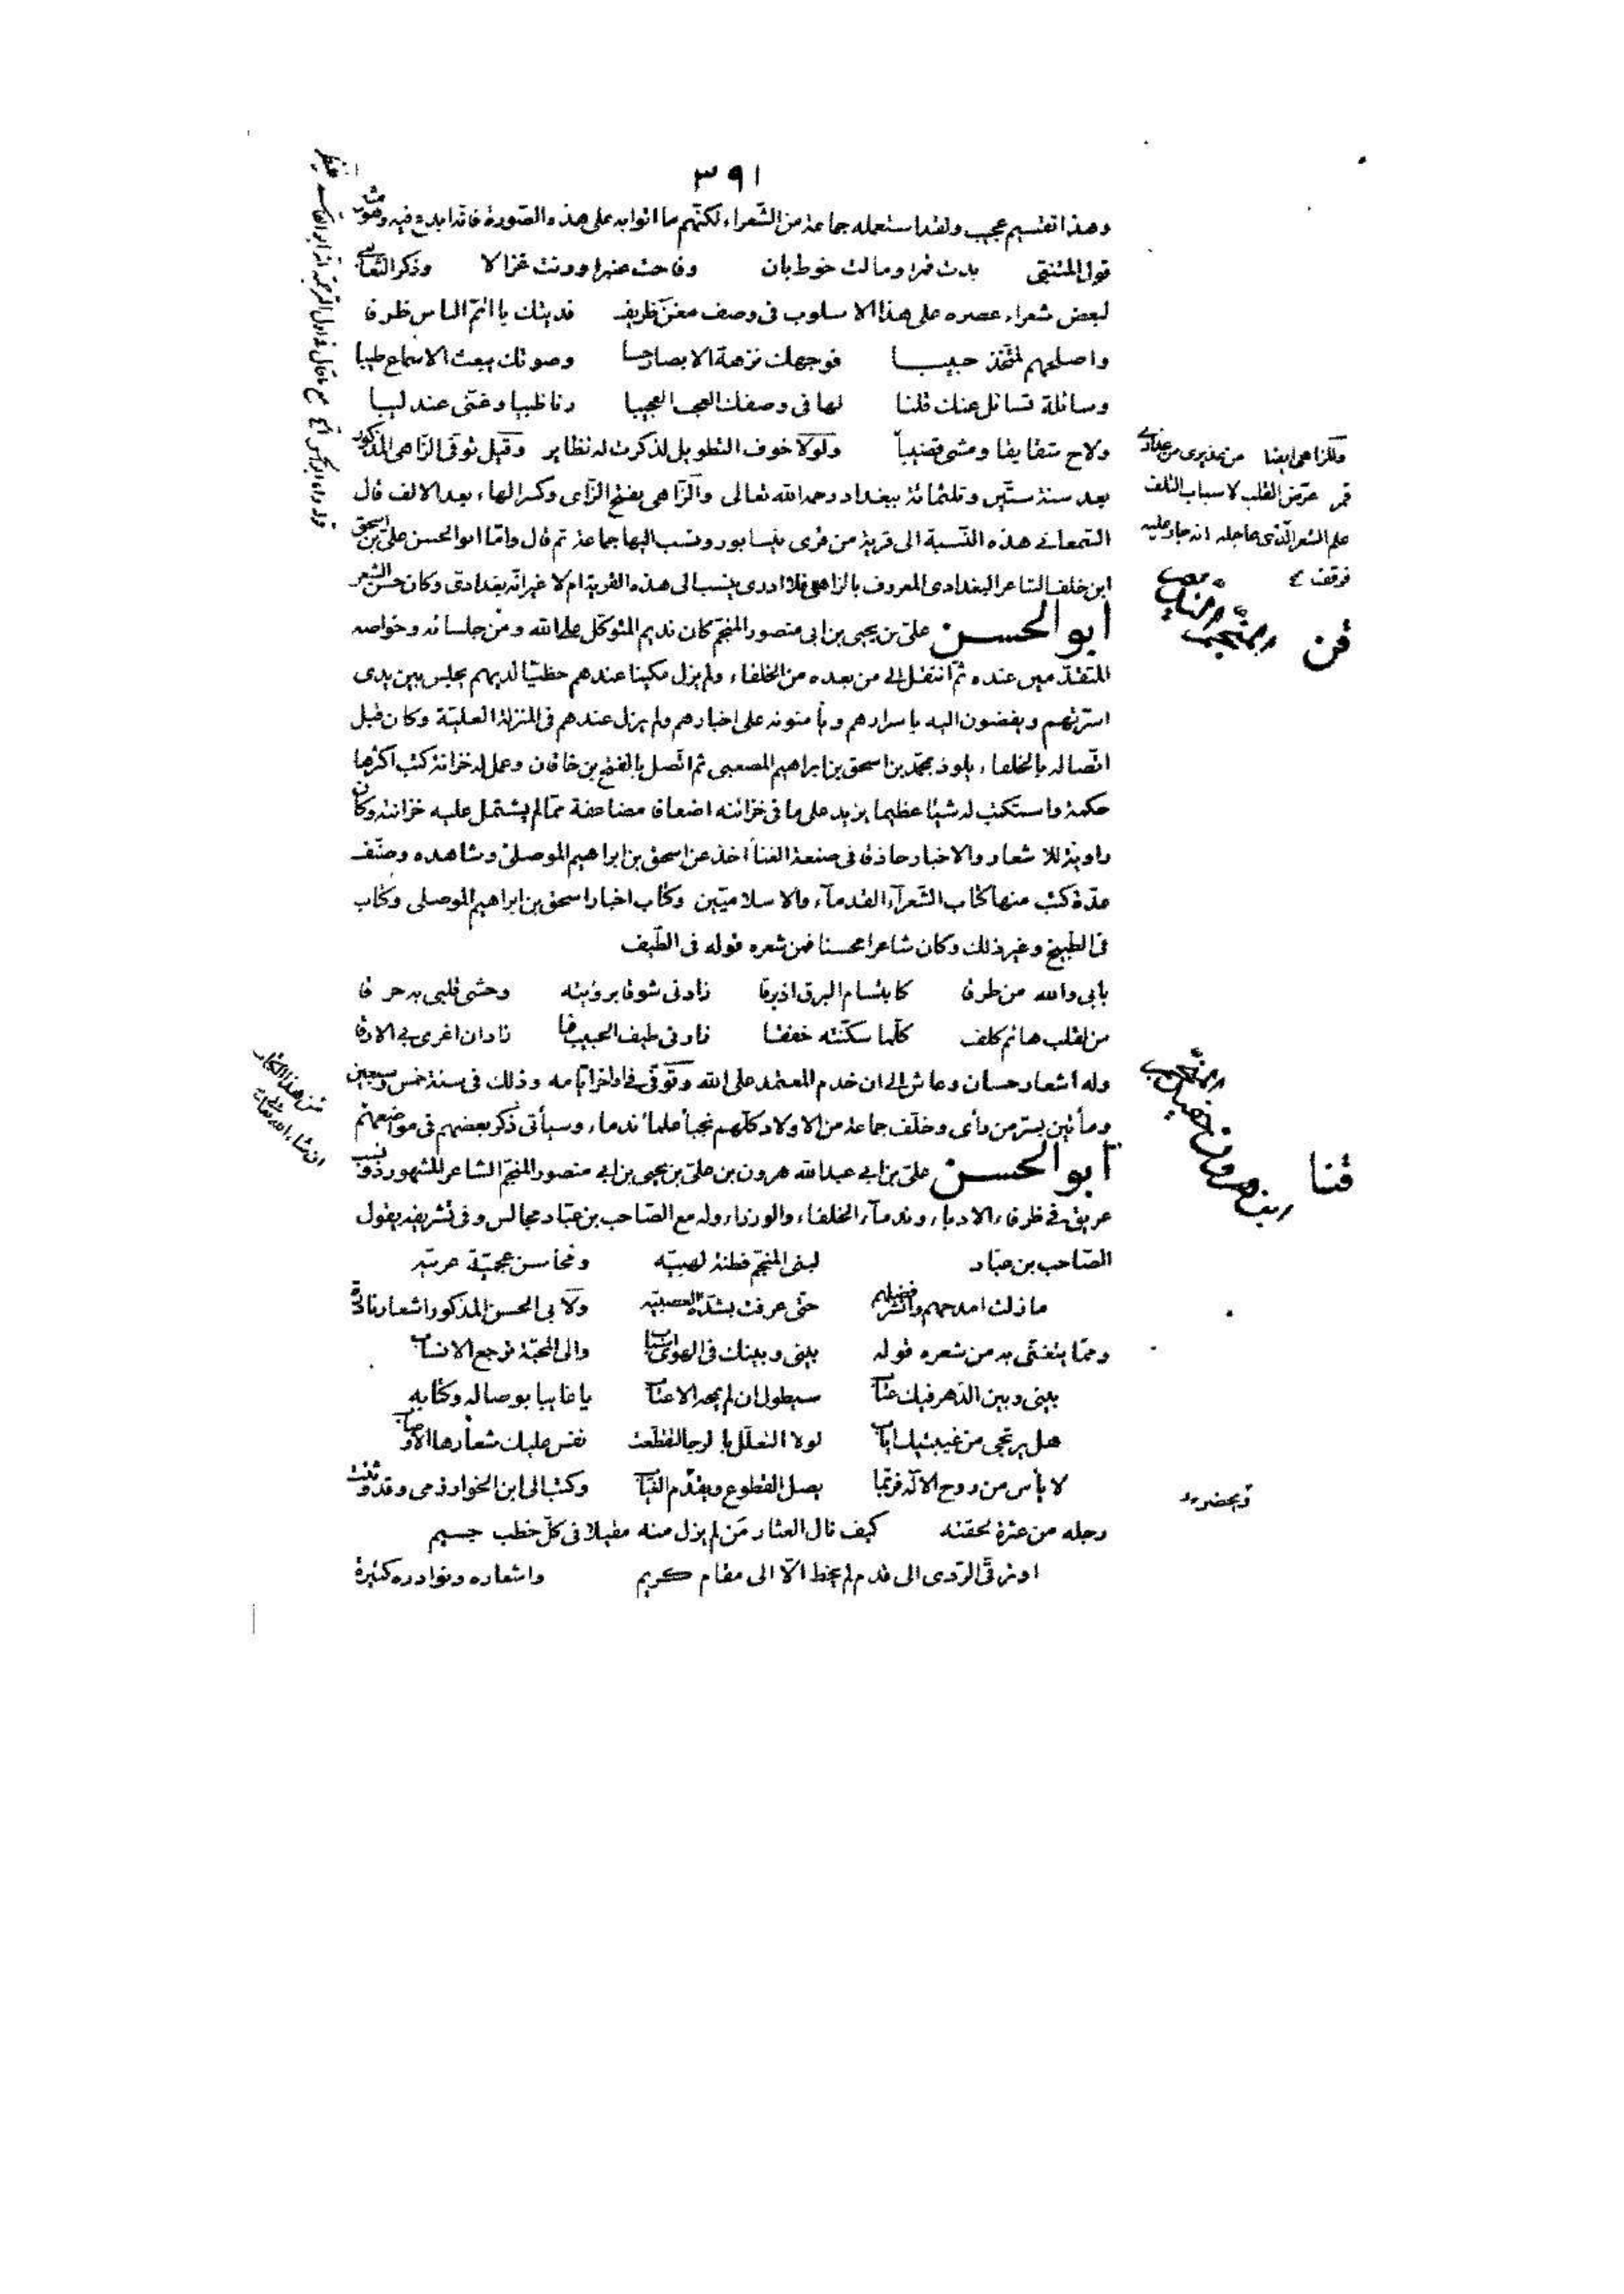 ٣٩١
وهذا تقسيم عجيب ولقد استعمله جماعة من الشّعراء لكنّهم ما اتوا به على هذه الصّورة فانه ابدع فيه وهو مثل
قول المتنبّى بدت قمرا ومالت خوط بان وفاحت عنبرا ورنت غزالا وذكر الثعالبى
لبعض شعراء عصره على هذا الاسلوب فى وصف مغنّ ظريف فديتك يا اتمّ الناس ظرفا
واصلحهم لمتّخذ حبيبا فوجهك نزهة الابصار حسنا وصوتك يمتع الاسماع طيبا
وسائلة تسائل عنك قلنا لها فى وصفك العجب العجيبا رنا ظبيا وغنّى عندليبا
ولاح شقايقا ومشى قضيباً ولولا خوف التطويل لذكرت له نظاير وقيل توفى الزاهى المذكور
بعد سنة ستّين وثلثمائة ببغداد رحمه الله تعالى والزّاهى بفتح الزّاى وكسر الهاء بعد الالف قال
السّمعانى هذه النّسبة الى قرية من قرى نيسابور ونسب اليها جماعة ثم قال وامّا ابو الحسن علىّ بن اسحق
ابن خلف الشاعر البغدادى المعروف بالزاهى فلا ادرى ينسب الى هذه القرية ام لا غير انّه بغدادىّ وكان حسن الشعر
ابو الحسن علىّ بن يحيى بن ابى منصور المنجّم كان نديم المتوكّل على الله ومن جلسائه وخواصه
المتقدّمين عنده ثمّ انتقل الى من بعده من الخلفاء ولم يزل مكينا عندهم حظيّا لديهم يجلس بين يدى
اسرّتهم ويفضون اليه باسرارهم ويأمنونه على اخبارهم ولم يزل عندهم فى المنزلة العليّة وكان قبل
اتّصاله بالخلفاء يلوذ بمحمّد بن اسحق بن ابراهيم المصعبى ثم اتّصل بالفتح بن خاقان وعمل له خزانة كتب اكثرها
حكمة واستكتب له شيئا عظيما يزيد على ما فى خزانته اضعاف مضاعفة ممّا لم يشتمل عليه خزانته وكان
راوية للاشعار والاخبار حاذقا فى صنعة الغناء اخذ عن اسحق بن ابراهيم الموصلى وشاهده وصنّف
عدّة كتب منها كتاب الشّعرآء القدمآء والاسلاميّين وكتاب اخبار اسحق بن ابراهيم الموصلى وكتاب
فى الطبيخ وغير ذلك وكان شاعرا محسنا فمن شعره قوله فى الطّيف
بابى والله من طرقا كابتسام البرق اذ برقا زادنى شوقا برؤيته وحشى قلبى به حرقا
من لقلب هائم كلف كلّما سكّنته خفقا زارنى طيف الحبيب فما زاد ان اغرى بى الارقا
وله اشعار حسان وعاش الى ان خدم المعتمد على الله وتوفّى فى اواخر ايّامه وذلك فى سنة خمس وسبعين
ومأتين بسرّ من رأى وخلّف جماعة من الاولاد كلّهم نجبأ علمآ ندماء وسيأتى ذكر بعضهم فى مواضعهم
من هذا الكتاب
ان شاء الله تعالى
ابو الحسن علىّ بن ابى عبد الله هرون بن علىّ بن يحيى بن ابى منصور المنجّم الشاعر المشهور ذو نسب
عريق فى ظرفاء الادباء وندمآء الخلفاء والوزراء وله مع الصّاحب بن عبّاد مجالس وفى تشريفه يقول
الصّاحب بن عبّاد لبنى المنجّم فطنة لهبيّه ومحاسن عجميّة عربيّه
ما زلت امدحهم وانشر فضلهم حتى عرفت بشدّة العصبيّه ولابى الحسن المذكور اشعار نادرة
وممّا يتغنّى به من شعره قوله بينى وبينك فى الهوى اسباب والى المحبّة ترجع الانساب
بينى وبين الدّهر فيك عتاب سيطول ان لم يمحه الاعتاب يا غايبا بوصاله وكتابه
هل يرتجى من غيبتيك اياب لولا التعلّل بالرجا لتقطّعت نفس عليك شعارها الاوصاب
لا يأس من روح الاله فربّما يصل القطوع ويقدم الغيّاب وكتب الى ابن الخوارزمى وقد وثئت
رجله من عثرة لحقته كيف نال العثار مَن لم يزل منه مقيلا فى كلّ خطب جسيم
او ترقّى الرّدى الى قدم لم يخط الّا الى مقام كريم واشعاره ونوادره كثيرة
وللزاهى ايضا من عذيرى من عذارى
قمر عرّض القلب لاسباب التلف
علم الشعر الّذى عاجله انه جار عليه
فوقف
قن
قنا
ويحضر